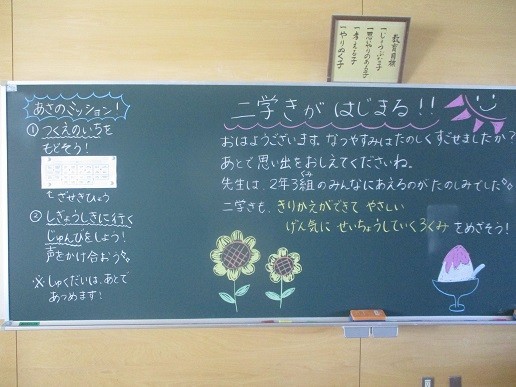 教育目標
一じょうぶな子
一思いやりのある子
一考える子
一やりぬく子
あさのミッション!
① つくえのいちを
もどそう!
ざせきひょう
② しぎょうしきに行く
じゅんびをしよう!
声をかけ合おう
※しゅくだいは、あとで
あつめます!
二学きが はじまる!!
おはようございます。なつやすみはたのしくすごせましたか?
あとで思い出をおしえてくださいね。
先生は、2年3組のみんなにあえるのがたのしみでした
ぐみ
二学きも、きりかえができて やさしい
げん気に せいちょうしていくろくみ をめざそう!